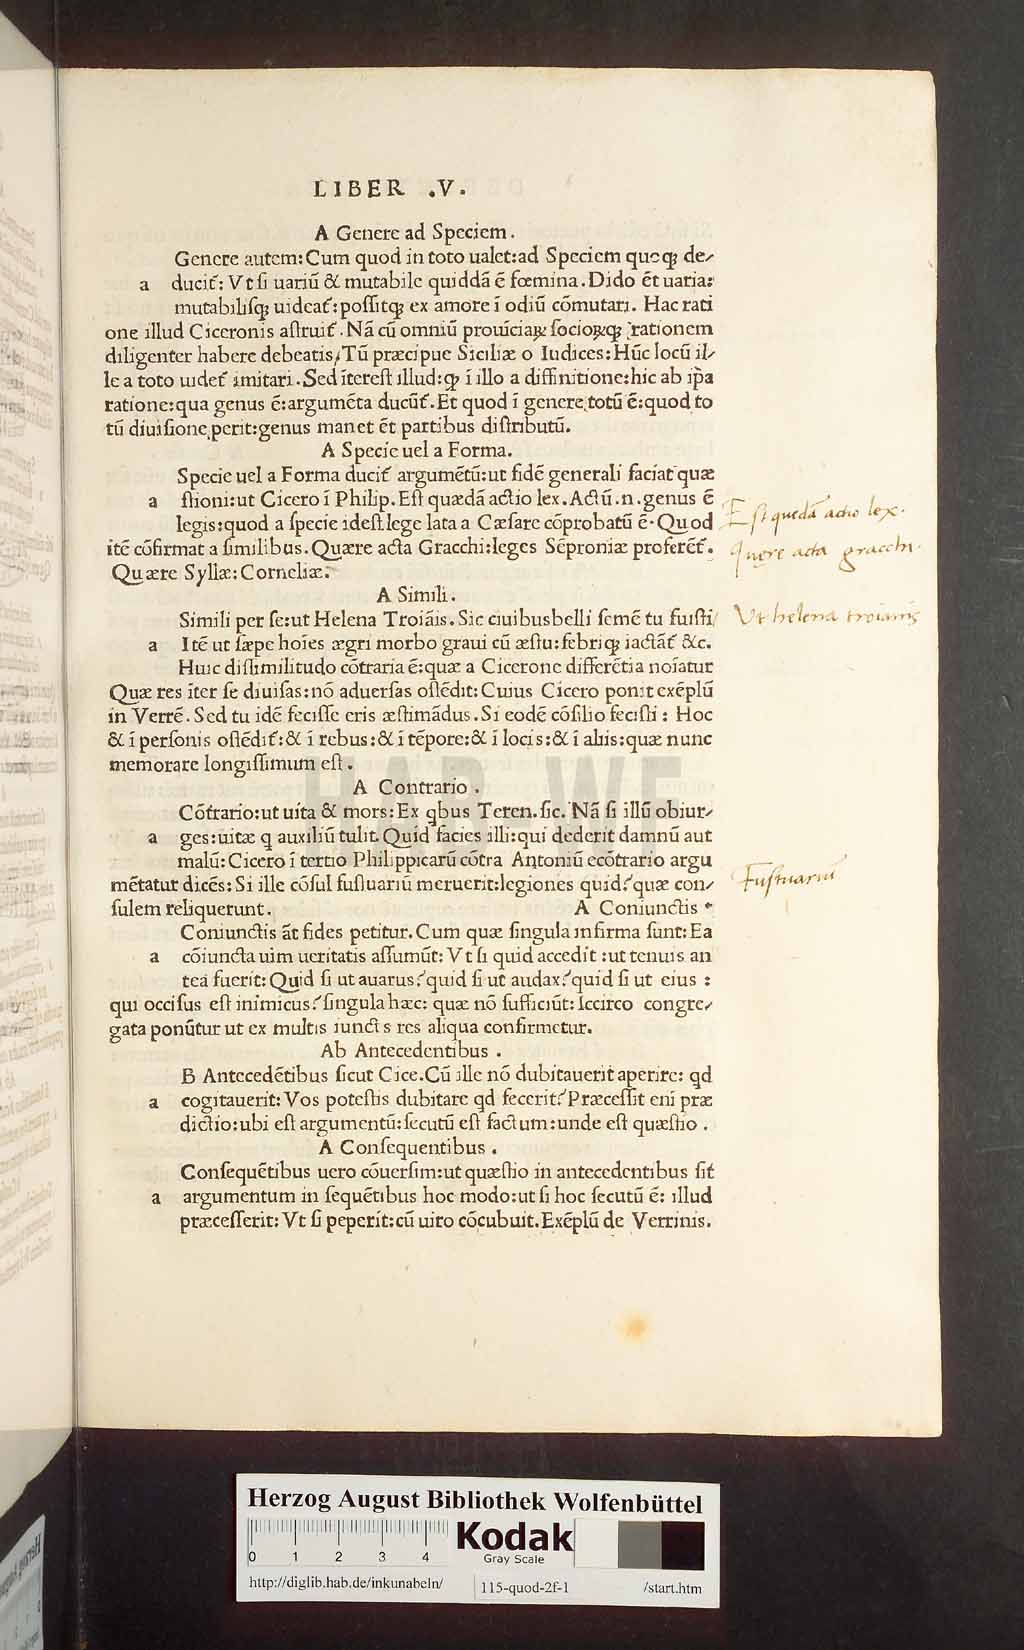 LIBER .V.
A Genere ad Speciem.
Genere autem: Cum quod in toto ualet: ad Speciem quoqꝫ de⸗
a ducit᷑: Vt si uariū & mutabile quiddā ē fœmina. Dido ēt uaria:
mutabilisqꝫ uideat᷑: possitqꝫ ex amore ī odiū cōmutari. Hac rati
one illud Ciceronis astruit᷑. Nā cū omniū prouīciaꝝ socioꝝqꝫ rationem
diligenter habere debeatis, Tū præcipue Siciliæ o Iudices: Hūc locū il⸗
le a toto uidet᷑ imitari. Sed īterest illud: qꝫ ī illo a diffinitione: hic ab ip̄a
ratione: qua genus ē: argumēta ducūt᷑. Et quod ī genere totū ē: quod to
tū diuisione perit: genus manet ēt partibus distributū.
A Specie uel a Forma.
Specie uel a Forma ducit᷑ argumētū: ut fidē generali faciat quæ
a stioni: ut Cicero ī Philip. Est quædā actio lex. Actū .n. genus ē
legis: quod a specie idest lege lata a Cæsare cōprobatū ē. Quod
Est quedā actio lex.
itē cōfirmat a similibus. Quære acta Gracchi: leges Sēproniæ proferēt᷑.
quęre acta gracchi.
Quære Syllæ: Corneliæ.
A Simili.
Simili per se: ut Helena Troiāis. Sic ciuibus belli semē tu fuisti
Vt helena troianis
a Itē ut sæpe hoīes ægri morbo graui cū æstu: febriqꝫ iactāt᷑ &c.
Huic dissimilitudo cōtraria ē: quæ a Cicerone differētia noīatur
Quæ res īter se diuisas: nō aduersas ostēdit: Cuius Cicero ponit exēplū
in Verrē. Sed tu idē fecisse eris æstimādus. Si eodē cōsilio fecisti: Hoc
& ī personis ostēdit᷑: & ī rebus: & ī tēpore: & ī locis: & ī aliis: quæ nunc
memorare longissimum est.
A Contrario.
Cōtrario: ut uita & mors: Ex qbus Teren. sic. Nā si illū obiur⸗
a ges: uitæ q auxiliū tulit. Quid facies illi: qui dederit damnū aut
malū: Cicero ī tertio Philippicarū cōtra Antoniū ecōtrario argu
mētatur dicēs: Si ille cōsul fustuariū meruerit: legiones quid? quæ con⸗
Fustuariū
sulem reliquerunt. A Coniunctis.
Coniunctis āt fides petitur. Cum quæ singula infirma sunt: Ea
a cōiuncta uim ueritatis assumūt: Vt si quid accedit: ut tenuis an
tea fuerit: Quid si ut auarus? quid si ut audax? quid si ut eius:
qui occisus est inimicus? singula hæc: quæ nō sufficiūt: Iccirco congre⸗
gata ponūtur ut ex multis iunctis res aliqua confirmetur.
Ab Antecedentibus.
B Antecedētibus sicut Cice. Cū ille nō dubitauerit aperire: qd
a cogitauerit: Vos potestis dubitare qd fecerit? Præcessit eni præ
dictio: ubi est argumentū: secutū est factum: unde est quæstio.
A Consequentibus.
Consequētibus uero cōuersim: ut quæstio in antecedentibus sit
a argumentum in sequētibus hoc modo: ut si hoc secutū ē: illud
præcesserit: Vt si peperit: cū uiro cōcubuit. Exēplū de Verrinis.
HAB-WF
Herzog August Bibliothek Wolfenbüttel
0 1 2 3 4
Kodak
Gray Scale
http://diglib.hab.de/inkunabeln/ 115-quod-2f-1 /start.htm